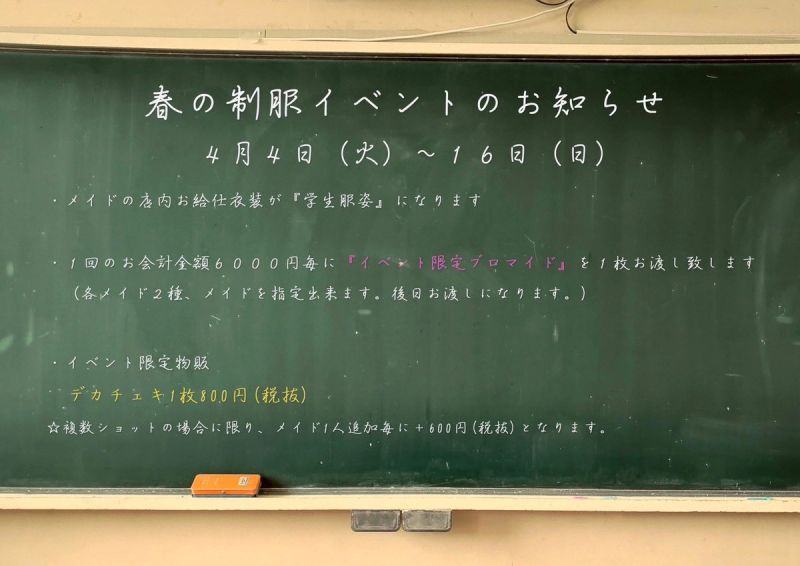 春の制服イベントのお知らせ
4月4日（火）～16日（日）
・メイドの店内お給仕衣装が『学生服姿』になります
・1回のお会計金額6000円毎に『イベント限定ブロマイド』を1枚お渡し致します
（各メイド2種、メイドを指定出来ます。後日お渡しになります。）
・イベント限定物販
デカチェキ1枚800円(税抜)
☆複数ショットの場合に限り、メイド1人追加毎に＋600円(税抜)となります。